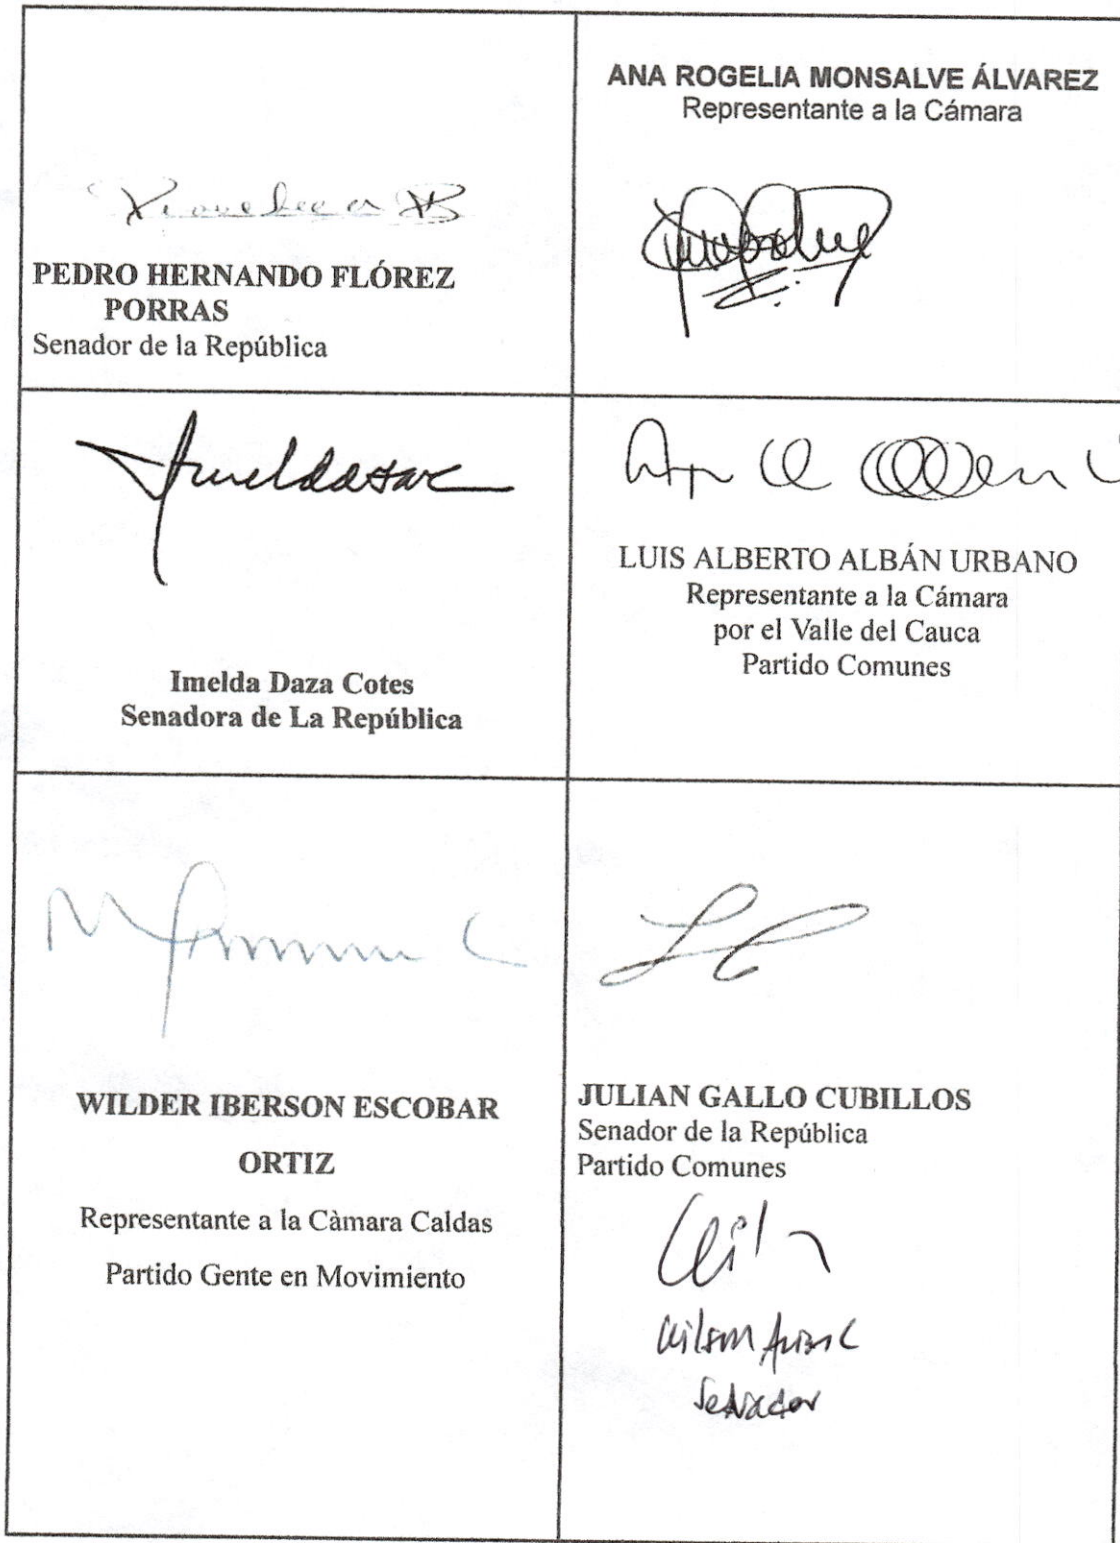 PEDRO HERNANDO FLÓREZ
PORRAS
Senador de la República
ANA ROGELIA MONSALVE ÁLVAREZ
Representante a la Cámara
Imelda Daza Cotes
Senadora de La República
LUIS ALBERTO ALBÁN URBANO
Representante a la Cámara
por el Valle del Cauca
Partido Comunes
WILDER IBERSON ESCOBAR
ORTIZ
Representante a la Càmara Caldas
Partido Gente en Movimiento
JULIAN GALLO CUBILLOS
Senador de la República
Partido Comunes
Wilson Arias C
Senador